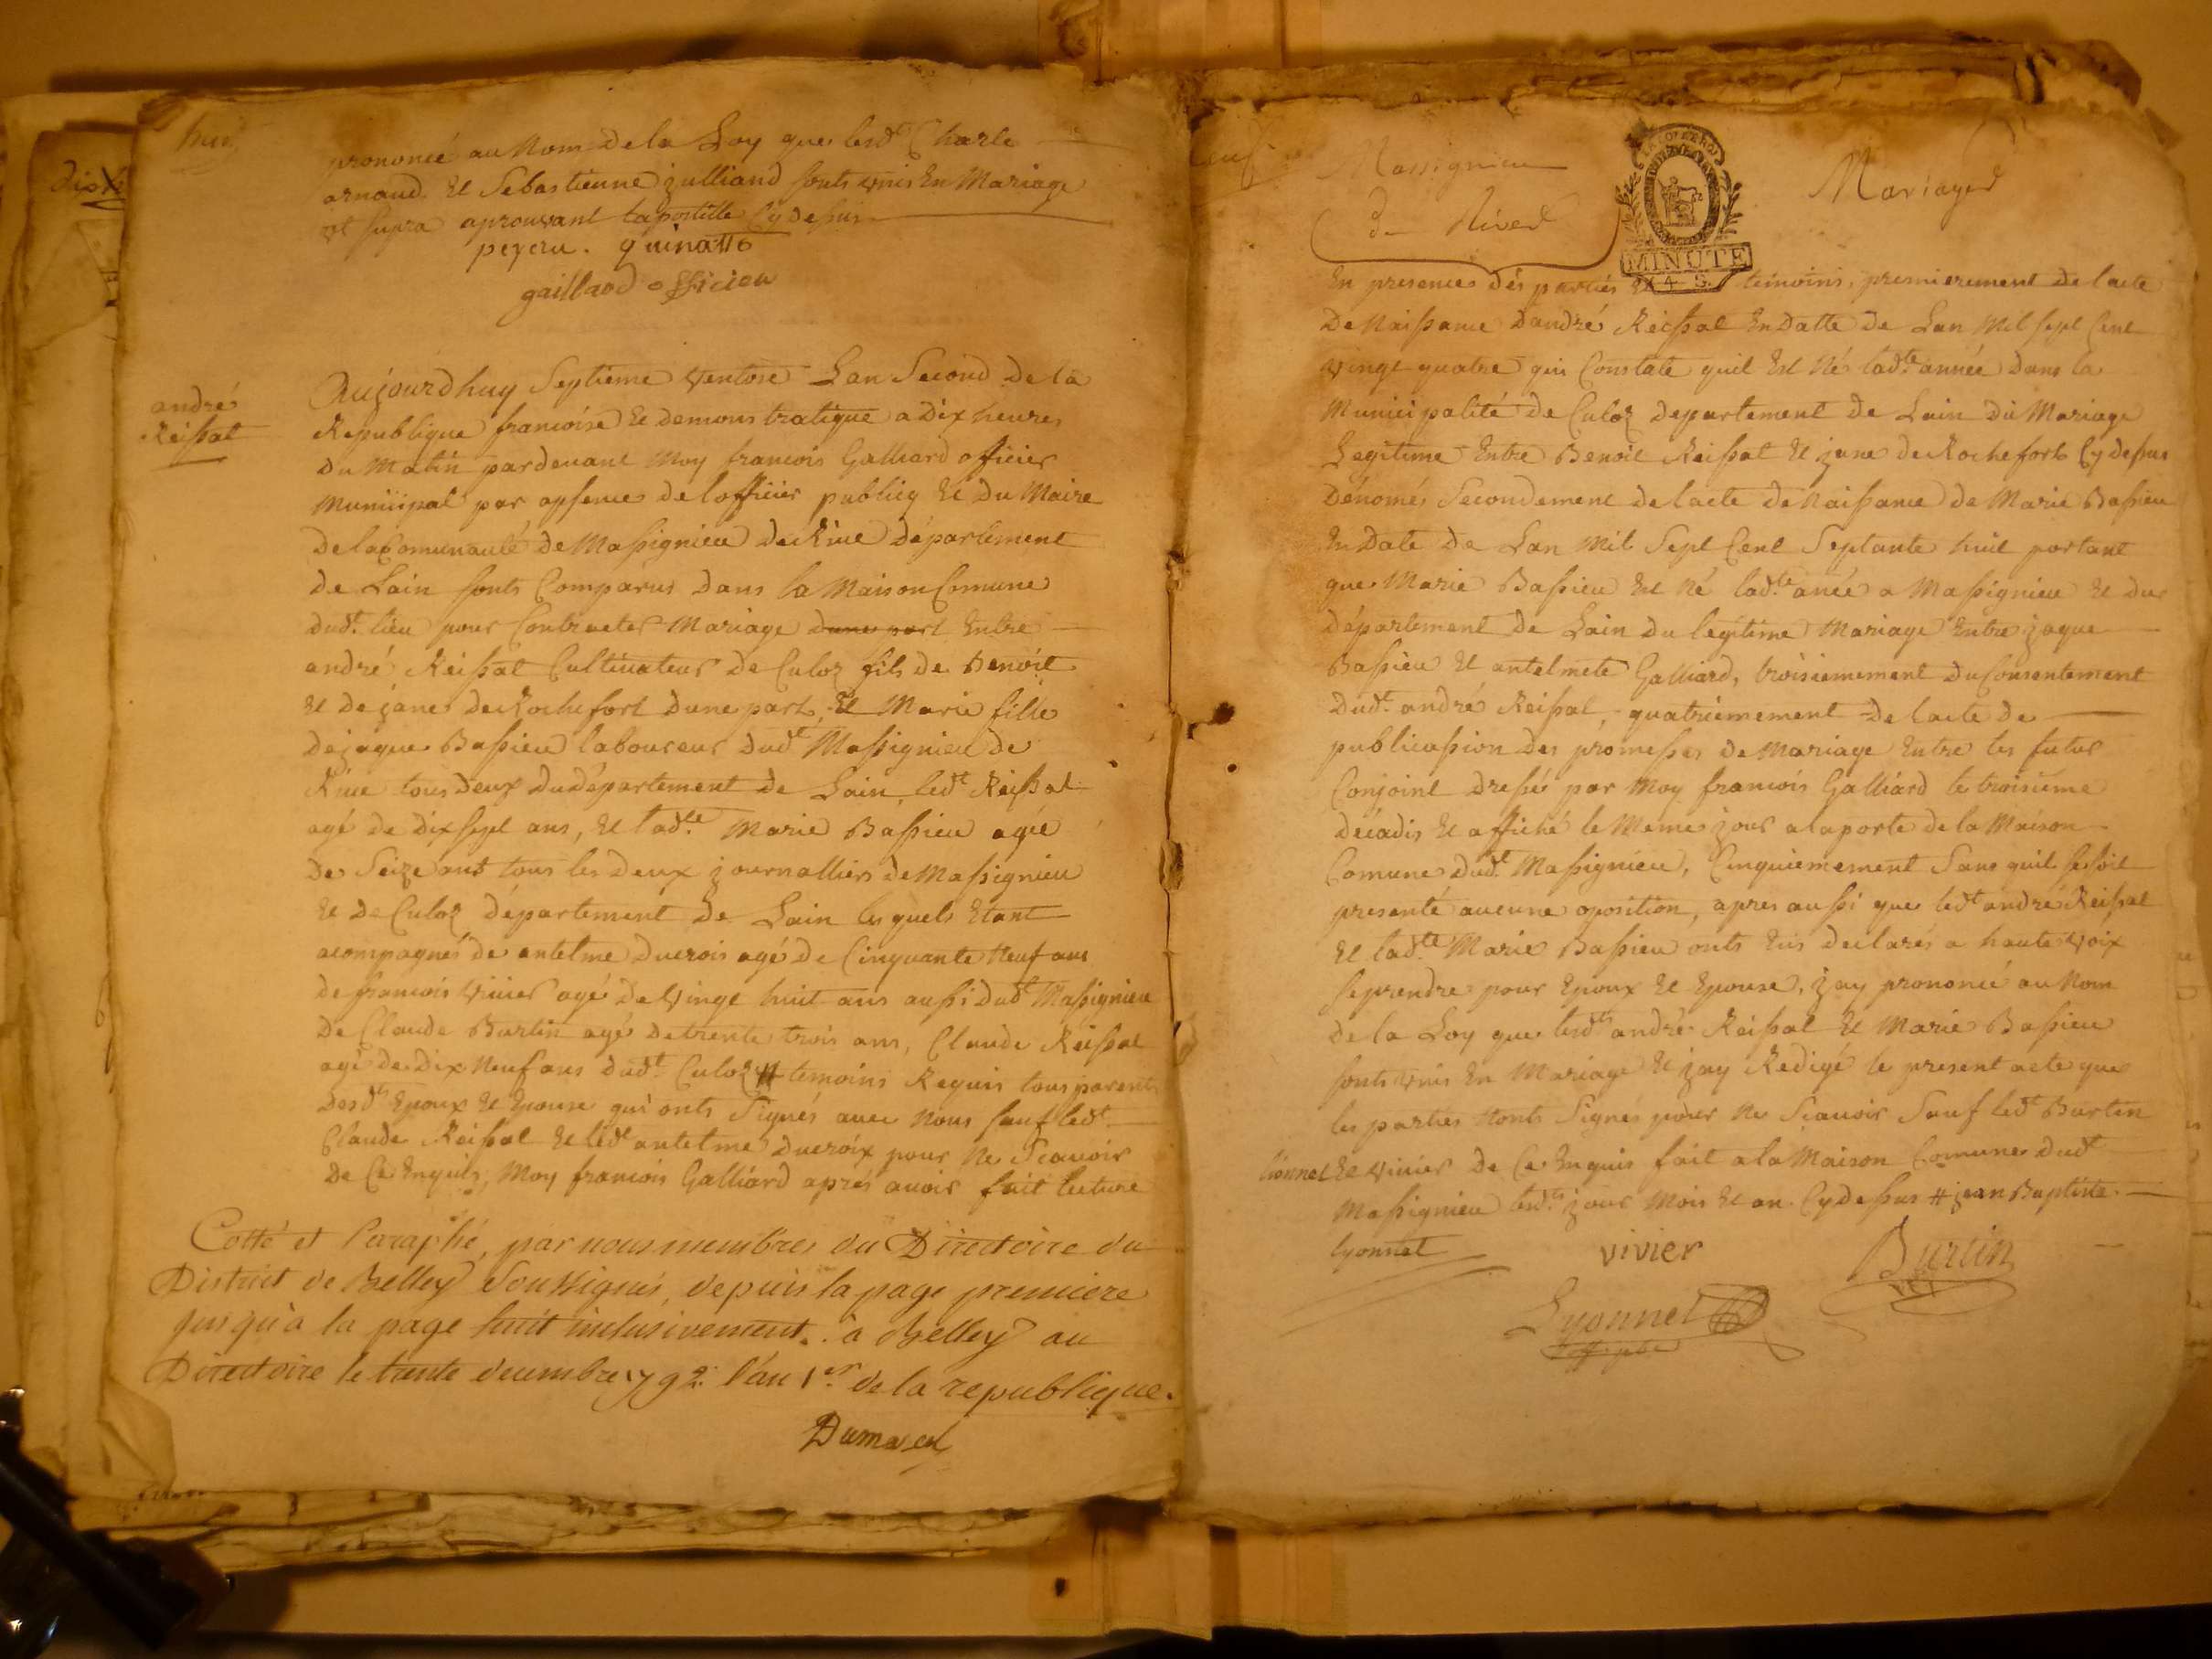 huit
prononcé au Nom de la Loy que lesdt Charle
arnaud et Sebastienne julliand sonts unis En Mariage
ut supra aprouvant lapostille Cydessus
peyeru. quinatto
gaillaod officieu
andré
Reissat
Aujourdhuy Septieme ventose Lan Second de la
Republique francoise et demonstratique a Dix heures
Du Matin pardevant Moy francois Galliard officier
Municipal par apsence delofficier publicq et Du Maire
DelaComunauté de Massignieu deRive département
de Lain sonts Comparus dans la MaisonComune
Dudt. lieu pour Contracter Mariage dune part Entre
andré Reissat Cultivateur de Culoz fils de Benoit
et de jane de Rochefort dune part, et Marie fille
dejaque Bassieu laboureur dudt Massignieu de
Rive tous deux Dudépartement de Lain, ledt Reissat
agé de Dix sept ans, et ladte. Marie Bassieu agée
de Seize ans tous les Deux journalliers de Massignieu
et de Culoz département de Lain lesquels Etant
acompagnés de antelme Ducrois agé de Cinquante Neuf ans
de francois vivier agé de vingt huit ans aussi dudt Massignieu
De Claude Burtin agé detrente trois ans, Claude Reissat
agé de Dix Neuf ans dudt. Culoz # temoins Requis tous parents
Desdts Epoux et Epouse qui onts Signés avec Nous sauf ledt.
Claude Reissat et ledt antelme Ducroix pour Ne Scavoir
De Ce Enquis, Moy francois Galliard aprés avoir fait lecture
Cotté et Paraphé, par nous membres du Directoire du
District de Belley Soussignés, depuis la page premiere
jusqu'à la page huit inclusivement. à Belley au
Directoire le trente decembre 1792. l'an 1er. de la republique.
Dumarest
neuf
Massignieu
de Rives
MINUTE
4 S.
Mariages
En presences dés parties et temoins, premierement de lacte
De Naissance dandré Reissat En Datte de Lan Mil sept Cent
vingt quatre qui Constate quil Est Né ladte. année dans la
Municipalité de Culoz departement de Lain du Mariage
Legitime Entre Benoit Reissat et jane de Rochefort Cydessus
Dénomés Secondement de lacte de Naissance de Marie Bassieu
En Date de Lan Mil Sept Cent Septante huit portant
que Marie Bassieu Est Né ladte. anée a Massignieu et du
département de Lain du legitime Mariage Entre jaque
Bassieu et antelmete Galliard, troisiemement DuConsentement
Dudt. andré Reissat, quatriemement de lacte de
publicassion des promesses de Mariage Entre les futur
Conjoint dressés par Moy francois Galliard le troisieme
décadis et affiché le Meme jour alaporte de la Maison
Comune dudt. Massignieu, Cinquiemement Sans quil sesoit
presenté aucune oposition, apres aussi que ledt andré Reissat
et ladte Marie Bassieu onts Eus declarés a haute voix
seprendre pour Epoux et Epouse, jay prononcé au Nom
de la Loy que lesdts andré Reissat et Marie Bassieu
sonts unis En Mariage et jay Redigé le present acte que
les parties Nonts Signés pour Ne Scavoir Sauf ledt Burtin
lionnel et vivier de Ce Enquis fait ala Maison Comune dudt
Massignieu lesdts. jour Mois et an. Cydessus # jean Baptiste
lyonnet
vivier
Burtin
Lyonnet